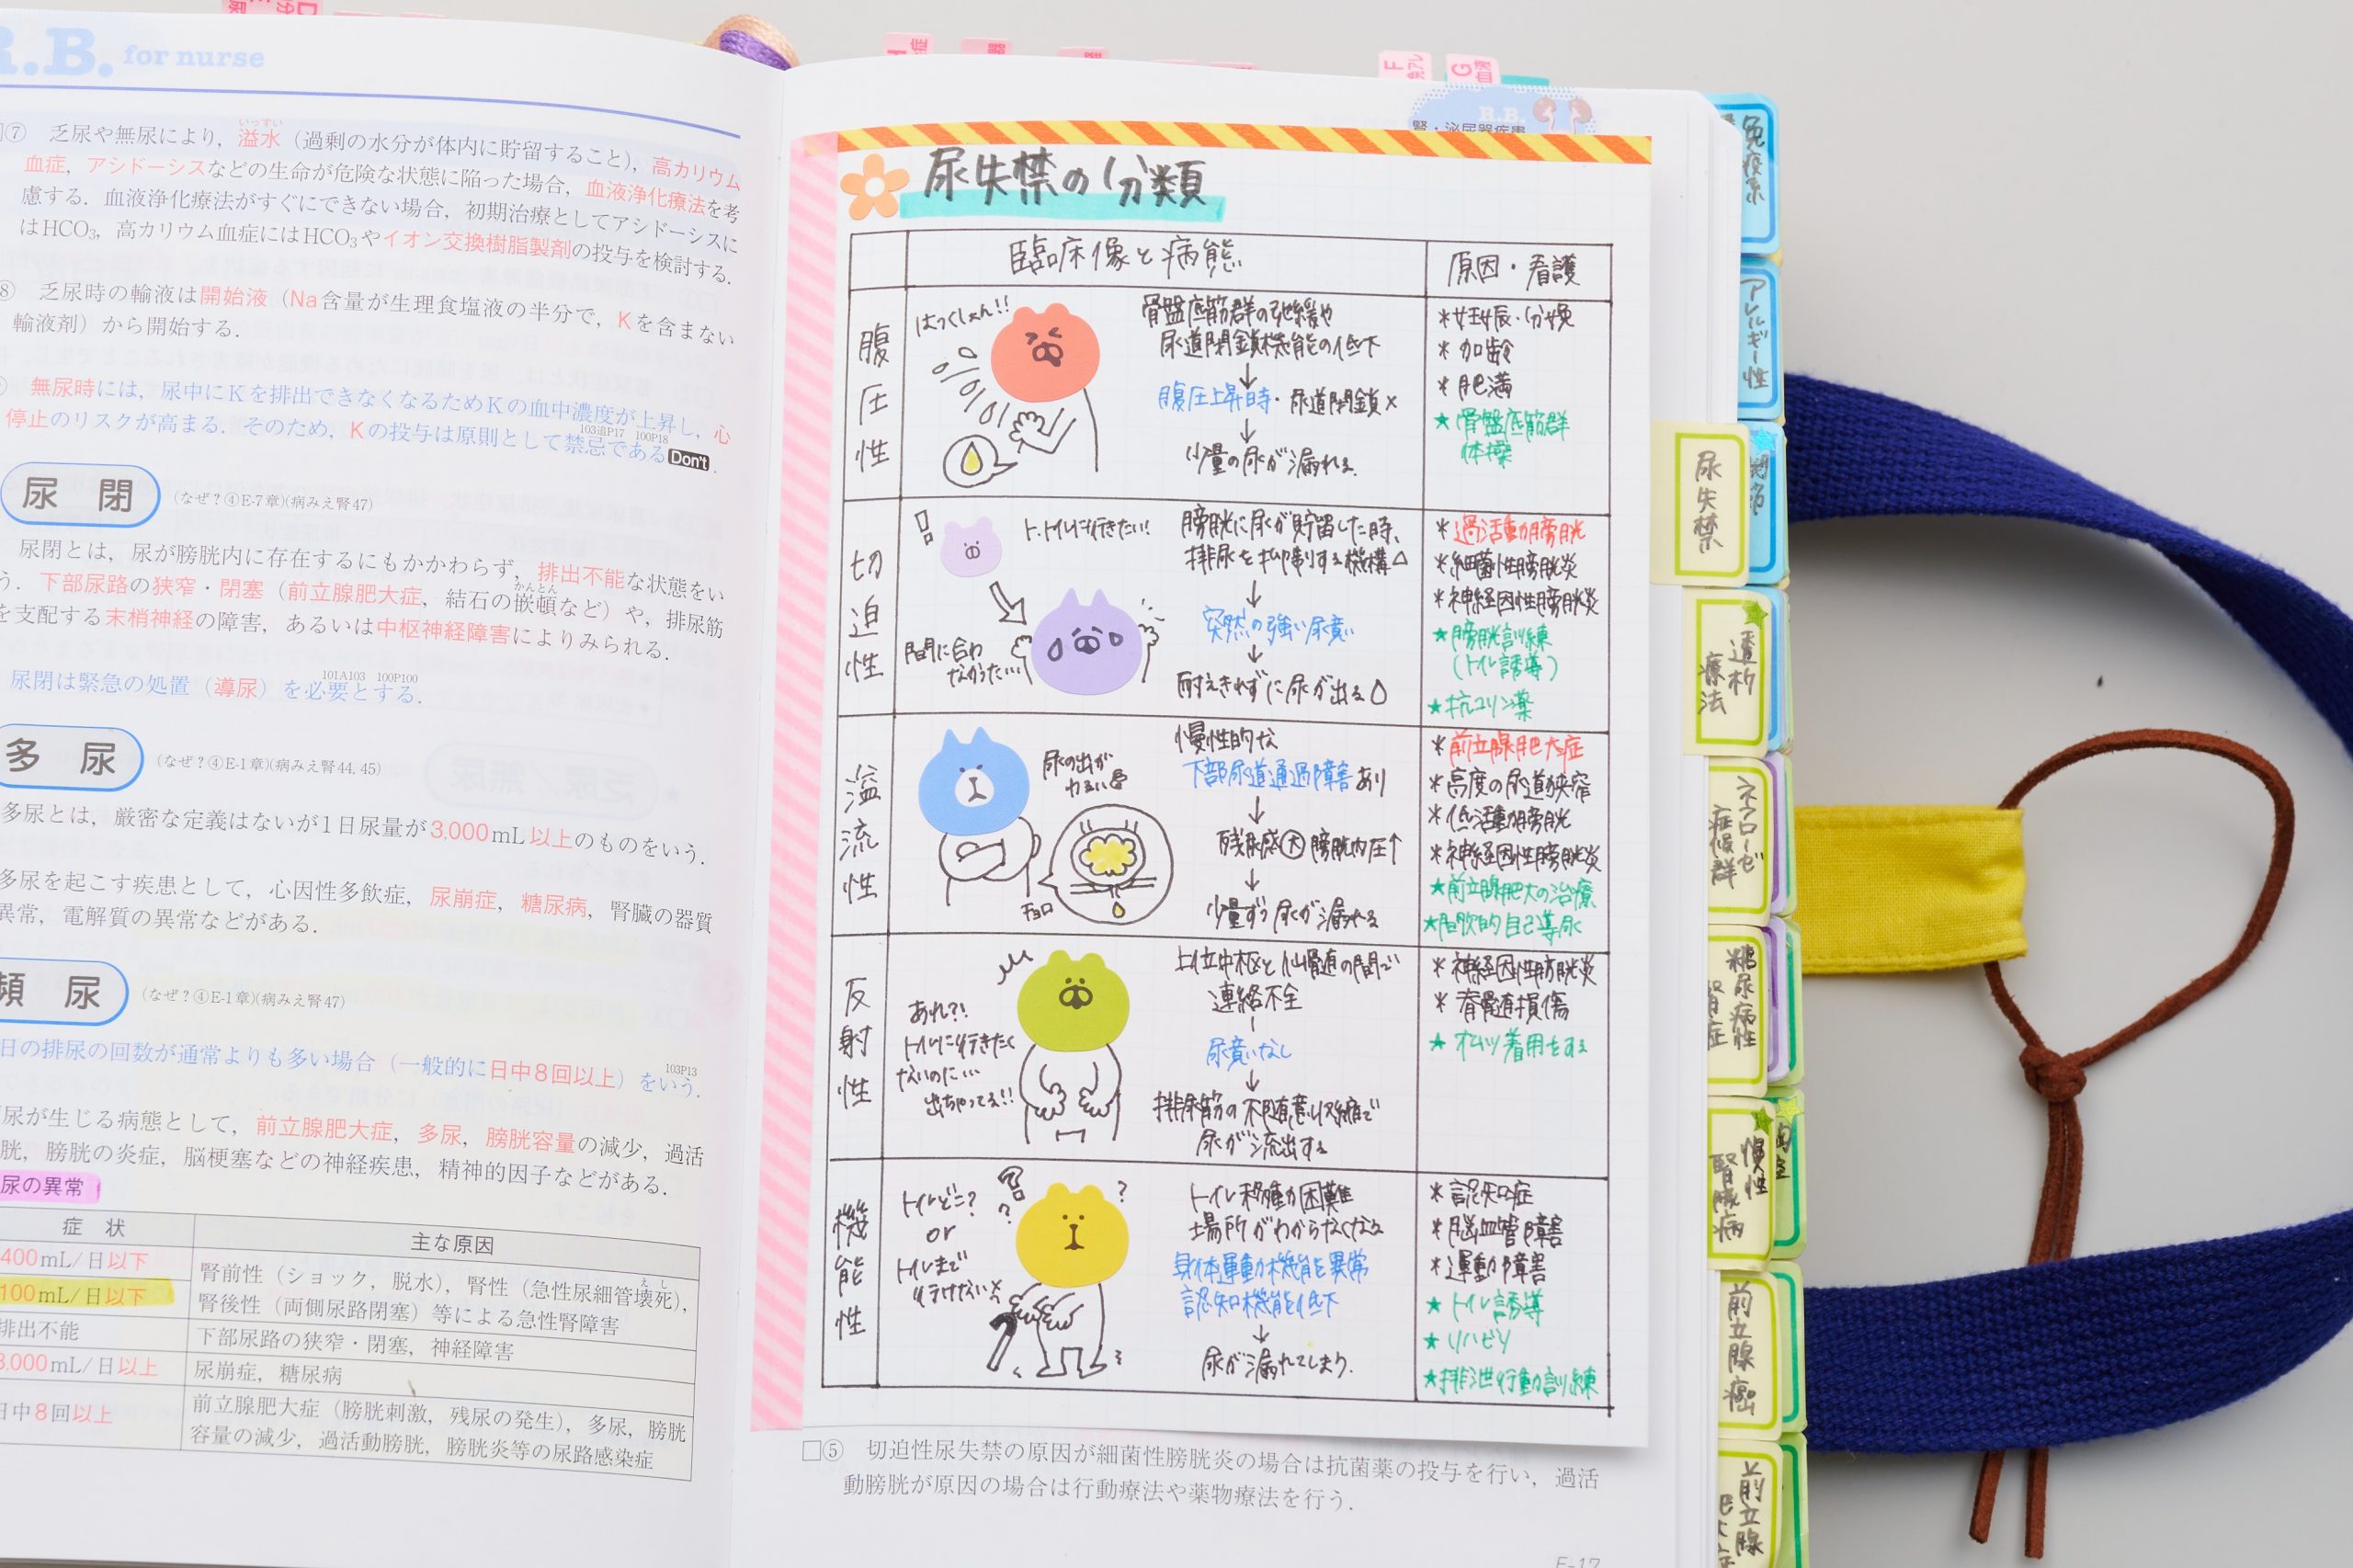 R.B. for nurse
⑦ 乏尿や無尿により，溢水（過剰の水分が体内に貯留すること），高カリウム
いっすい
血症，アシドーシスなどの生命が危険な状態に陥った場合，血液浄化療法を考
慮する．血液浄化療法がすぐにできない場合，初期治療としてアシドーシスに
はHCO₃，高カリウム血症にはHCO₃やイオン交換樹脂製剤の投与を検討する．
⑧ 乏尿時の輸液は開始液（Na含量が生理食塩液の半分で，Kを含まない
輸液剤）から開始する．
無尿時には，尿中にKを排出できなくなるためKの血中濃度が上昇し，心
停止のリスクが高まる．そのため，Kの投与は原則として禁忌である Don't．
103追P17 100P18
尿 閉 （なぜ？④E-7章）（病みえ腎47）
尿閉とは，尿が膀胱内に存在するにもかかわらず，排出不能な状態をい
う．下部尿路の狭窄・閉塞（前立腺肥大症，結石の嵌頓など）や，排尿筋
かんとん
を支配する末梢神経の障害，あるいは中枢神経障害によりみられる．
尿閉は緊急の処置（導尿）を必要とする．
101A103 100P100
多 尿 （なぜ？④E-1章）（病みえ腎44, 45）
多尿とは，厳密な定義はないが1日尿量が3,000mL以上のものをいう．
多尿を起こす疾患として，心因性多飲症，尿崩症，糖尿病，腎臓の器質
異常，電解質の異常などがある．
頻 尿 （なぜ？④E-1章）（病みえ腎47）
日の排尿の回数が通常よりも多い場合（一般的に日中8回以上）をいう．
103P13
尿が生じる病態として，前立腺肥大症，多尿，膀胱容量の減少，過活
胱，膀胱の炎症，脳梗塞などの神経疾患，精神的因子などがある．
尿の異常
症 状 主な原因
400mL/日以下
100mL/日以下
腎前性（ショック，脱水），腎性（急性尿細管壊死），
えし
腎後性（両側尿路閉塞）等による急性腎障害
排出不能 下部尿路の狭窄・閉塞，神経障害
3,000mL/日以上 尿崩症，糖尿病
日中8回以上 前立腺肥大症（膀胱刺激，残尿の発生），多尿，膀胱
容量の減少，過活動膀胱，膀胱炎等の尿路感染症
R.B.
腎・泌尿器疾患
尿失禁の分類
臨床像と病態
原因・看護
腹圧性
はっくしょん!!
骨盤底筋群の弛緩や
尿道閉鎖機能の低下
↓
腹圧上昇時・尿道閉鎖×
↓
少量の尿が漏れる
＊妊娠・分娩
＊加齢
＊肥満
★骨盤底筋群
体操
切迫性
ト、トイレに行きたい！
間に合わ
なかった…
膀胱に尿が貯留した時、
排尿を抑制する機構△
↓
突然の強い尿意
↓
耐えきれずに尿が出る
＊過活動膀胱
＊細菌性膀胱炎
＊神経因性膀胱炎
★膀胱訓練
（トイレ誘導）
★抗コリン薬
溢流性
尿の出が
わるい
チョロ
慢性的な
下部尿道通過障害あり
↓
残尿感 大 膀胱内圧↑
↓
少量ずつ尿が漏れる
＊前立腺肥大症
＊高度の尿道狭窄
＊低活動膀胱
＊神経因性膀胱炎
★前立腺肥大の治療
★間歇的自己導尿
反射性
あれ?!
トイレに行きたく
ないのに…
出ちゃってる!!
上位中枢と仙髄の間で
連絡不全
尿意なし
↓
排尿筋の不随意収縮で
尿が流出する
＊神経因性膀胱炎
＊脊髄損傷
★オムツ着用をする
機能性
トイレどこ？
or
トイレまで
行けない
トイレ移動困難
場所がわからなくなる
身体運動機能異常
認知機能低下
↓
尿が漏れてしまう.
＊認知症
＊脳血管障害
＊運動障害
★トイレ誘導
★リハビリ
★排泄行動訓練
□⑤ 切迫性尿失禁の原因が細菌性膀胱炎の場合は抗菌薬の投与を行い，過活
動膀胱が原因の場合は行動療法や薬物療法を行う．
E-17
免疫系
アレルギー性
尿失禁
透析療法
ネフローゼ症候群
糖尿病性腎症
慢性腎臓病
前立腺癌
前立腺